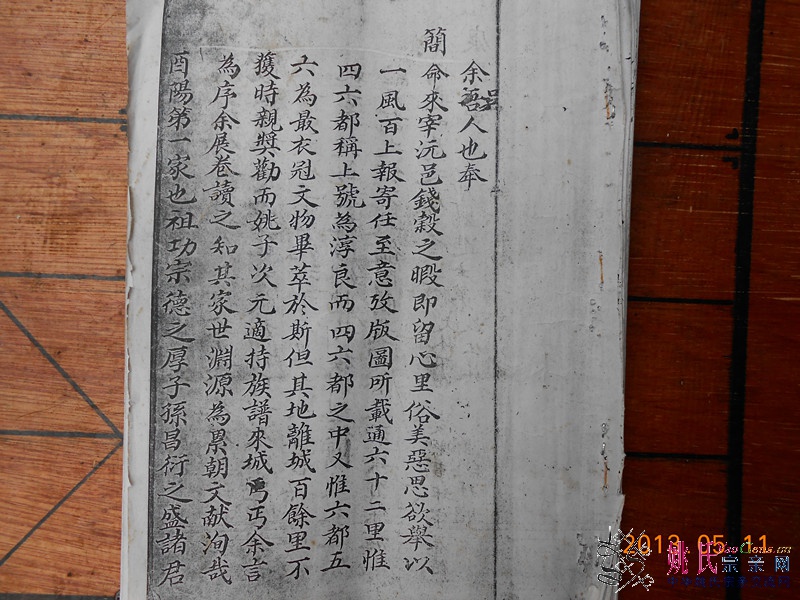 余吳人也奉
簡命來宰沅邑錢穀之暇即留心里俗美惡思欲舉以
一風百上報寄任至意攷版圖所載通六十二里惟
四六都稱上號為淳良而四六都之中又惟六都五
六為最衣冠文物畢萃於斯但其地離城百餘里不
獲時親奬勸而姚子次元適持族譜來城丐余言
為序余展卷讀之知其家世淵源為累朝文献洵哉
酉陽第一家也祖功宗德之厚子孫昌衍之盛諸君
2013.05.11
姚氏宗亲网